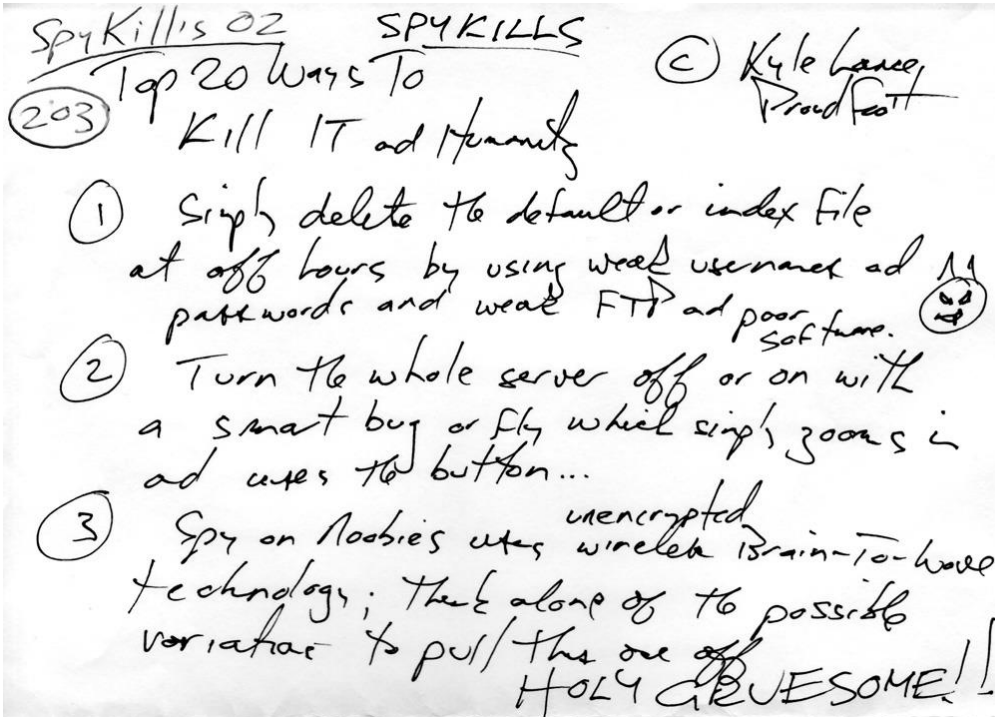 SpyKills 02 SPYKILLS
Top 20 Ways To
© Kyle Lance
Proudfoot
203
Kill IT and Humanity
1 Simply delete the default or index file
at off hours by using weak usernames and
passwords and weak FTP and poor
software.
2 Turn the whole server off or on with
a smart bug or fly which simply zooms in
and uses the button...
unencrypted
3 Spy on Noobies using wireless Brain-To-Wave
technology; think alone of the possible
variations to pull this one off
HOLY GRUESOME!!